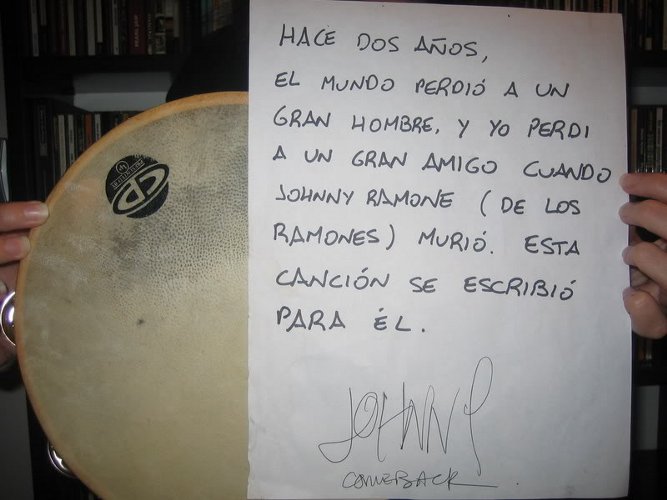 HACE DOS AÑOS,
EL MUNDO PERDIÓ A UN
GRAN HOMBRE, Y YO PERDI
A UN GRAN AMIGO CUANDO
JOHNNY RAMONE (DE LOS
RAMONES) MURIÓ. ESTA
CANCIÓN SE ESCRIBIÓ
PARA ÉL.
JOHNNY
COMEBACK
CP